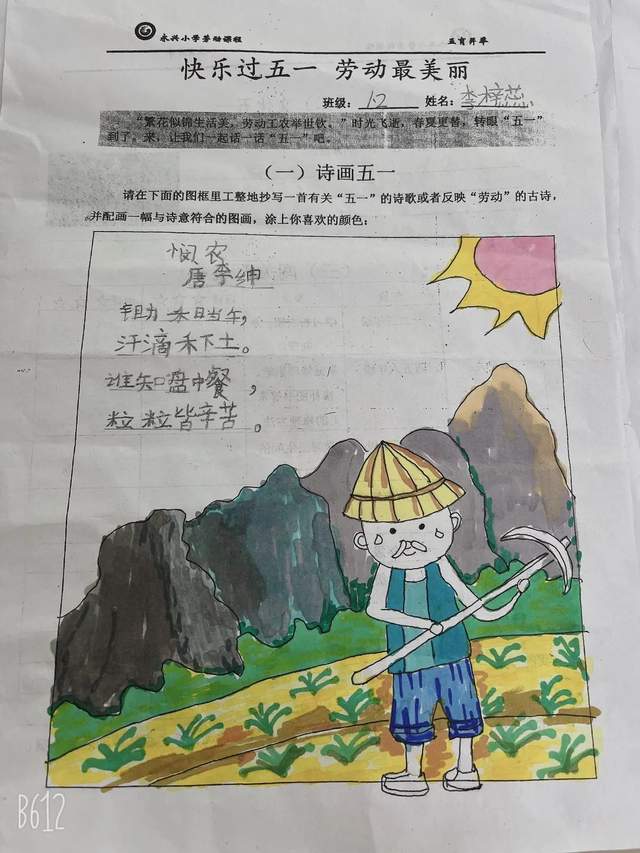 永兴小学劳动课程
五育并举
快乐过五一 劳动最美丽
班级：12 姓名：李梓蕊
“繁花似锦生活美，劳动工农举世钦。”时光飞逝，春夏更替，转眼“五一”
到了。来，让我们一起话一话“五一”吧。
（一）诗画五一
请在下面的图框里工整地抄写一首有关“五一”的诗歌或者反映“劳动”的古诗，
并配画一幅与诗意符合的图画，涂上你喜欢的颜色：
悯农
唐李绅
锄禾日当午，
汗滴禾下土。
谁知盘中餐，
粒粒皆辛苦。
B612